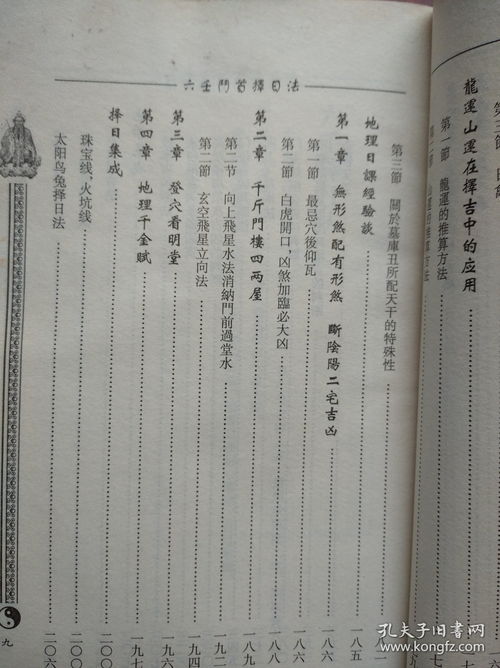 龍運山運在擇吉中的应用
第一節 龍運的推算方法
六壬鬥首擇日法
第三節 關於墓庫丑所配天干的特殊性……一八一
地理日課經驗談……一八五
第一章 無形煞配有形煞 斷陰陽二宅吉凶……一八六
第一節 最忌穴後仰瓦……一八六
第二節 白虎開口，凶煞加臨必大凶……一八八
第二章 千斤門樓四兩屋……一八九
第二节 向上飛星水法消納門前過堂水……一九一
第二節 玄空飛星立向法……一九四
第三章 登穴看明堂……一九六
第四章 地理千金賦……一九七
擇日集成……二〇〇
珠宝线，火坑线……二〇〇
太阳鸟兔择日法……二〇六
九
孔夫子旧书网